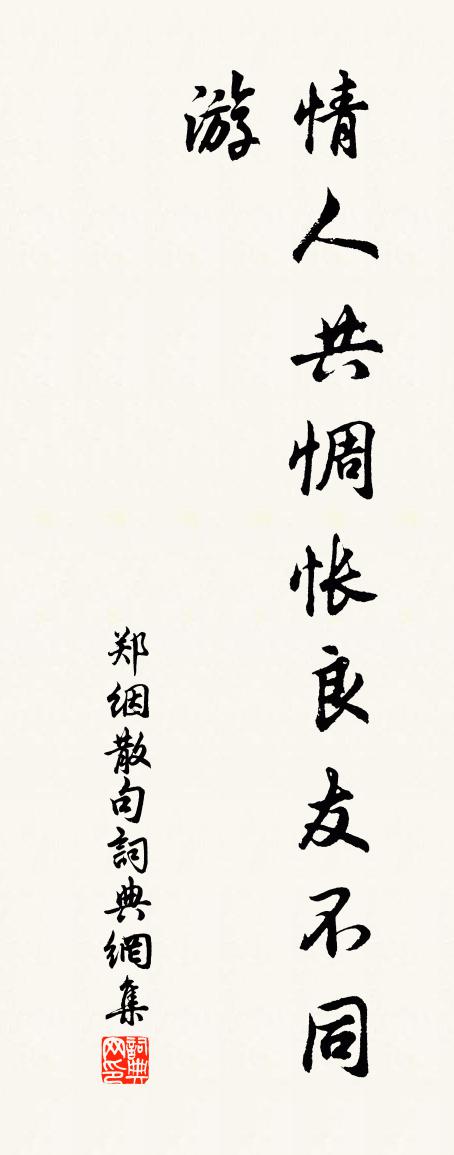 情人共惆怅良友不同
游
郑絪散句詞典網集
詞典
网印